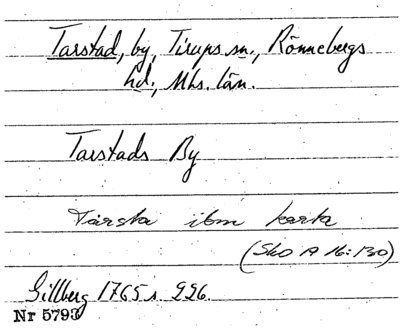 Tarstad, by, Tirups sn., Rönnebergs
hd., Mhs. län.
Tarstads By
Tårsta ibm karta
(Sko A 16:130)
Gillberg 1765 s. 226.
Nr 5793